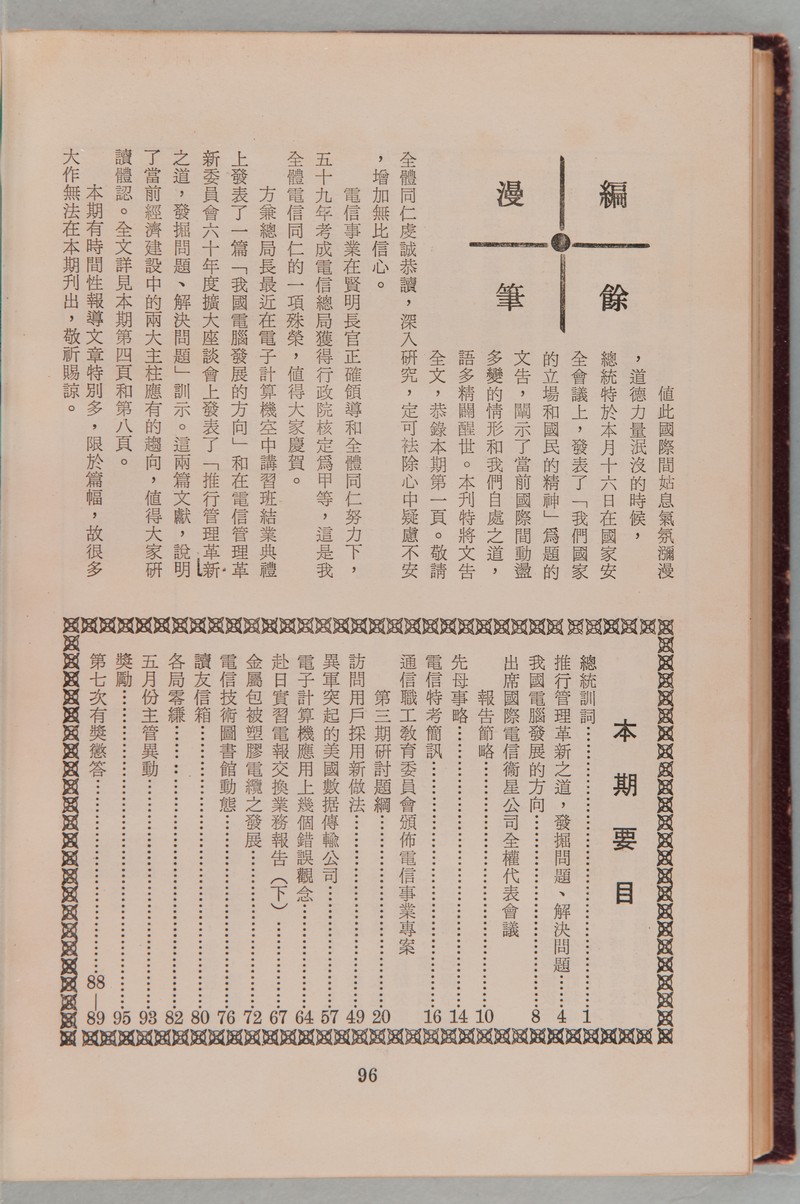 編餘
漫筆
值此國際間姑息氣氛瀰漫
，道德力量泯沒的時候，
總統特於本月十六日在國家安
全會議上，發表了「我們國家
的立場和國民的精神」爲題的
文告，闡示了當前國際間動盪
多變的情形和我們自處之道，
語多精闢醒世。本刊特將文告
全文，恭錄本期第一頁。敬請
全體同仁虔誠恭讀，深入研究，定可祛除心中疑慮不安
，增加無比信心。
電信事業在賢明長官正確領導和全體同仁努力下，
五十九年考成電信總局獲得行政院核定爲甲等，這是我
全體電信同仁的一項殊榮，值得大家慶賀。
方兼總局長最近在電子計算機空中講習班結業典禮
上發表了一篇「我國電腦發展的方向」和在電信管理革
新委員會六十年度擴大座談會上發表了「推行管理革新
之道，發掘問題、解決問題」訓示。這兩篇文獻，說明
了當前經濟建設中的兩大主柱應有的趨向，值得大家研
讀體認。全文詳見本期第四頁和第八頁。
本期有時間性報導文章特別多，限於篇幅，故很多
大作無法在本期刊出，敬祈賜諒。
本期要目
總統訓詞……1
推行管理革新之道，發掘問題、解決問題……4
我國電腦發展的方向……8
出席國際電信衞星公司全權代表會議
報告節略……10
先母事略……14
電信特考簡訊……16
通信職工敎育委員會頒佈電信事業專案
第三期研討題綱……20
訪問用戶採用新做法……49
異軍突起的美國數据傳輸公司……57
電子計算機應用上幾個錯誤觀念……64
赴日實習電報交換業務報告（下）……67
金屬包被塑膠電纜之發展……72
電信技術圖書館動態……76
讀友信箱……80
各局零縑……82
五月份主管異動……93
獎勵……95
第七次有獎懲答……88—89
96